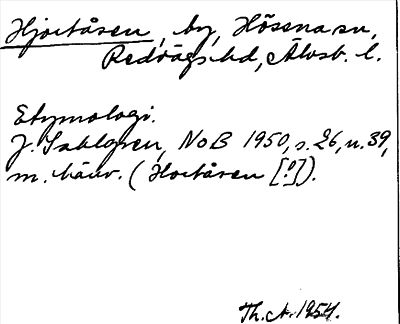 Hjortåsen, by, Hössna sn,
Redvägs hd, Älvsb. l.
Etymologi.
J. Sahlgren, NoB 1950, s. 26, n. 39,
m. hänv. (Hortåsen [o!]).
Th. A. 1954.